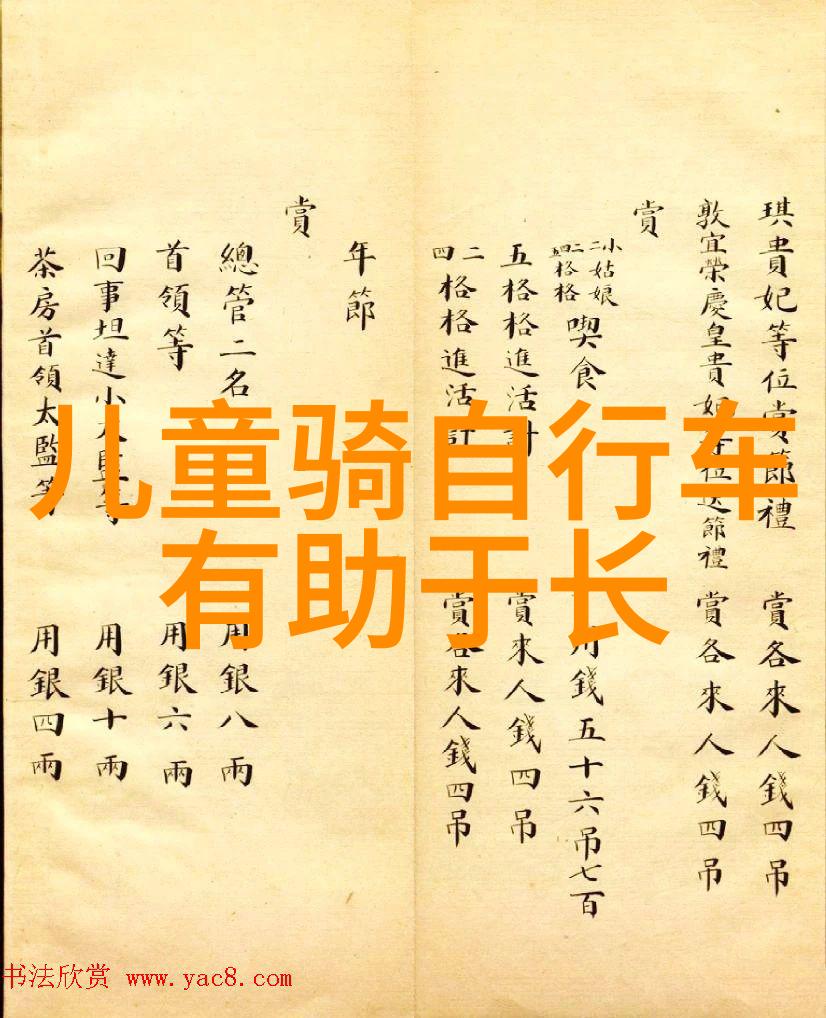 琪貴妃等位賞節禮 賞各來人錢四吊
敦宜榮慶皇貴妃等位送節禮 賞各來人錢四吊
賞
姑娘 格格 喫食 用錢五十六吊七百
五格格進活計 賞來人錢四吊
二四格格進活計 賞各來人錢四吊
年節
賞
總管二名 用銀八兩
首領等 用銀六兩
回事坦達小太監等 用銀十兩
茶房首領太監等 用銀四兩
儿童骑自行车
有助于长
书法欣赏 www.yac8.com